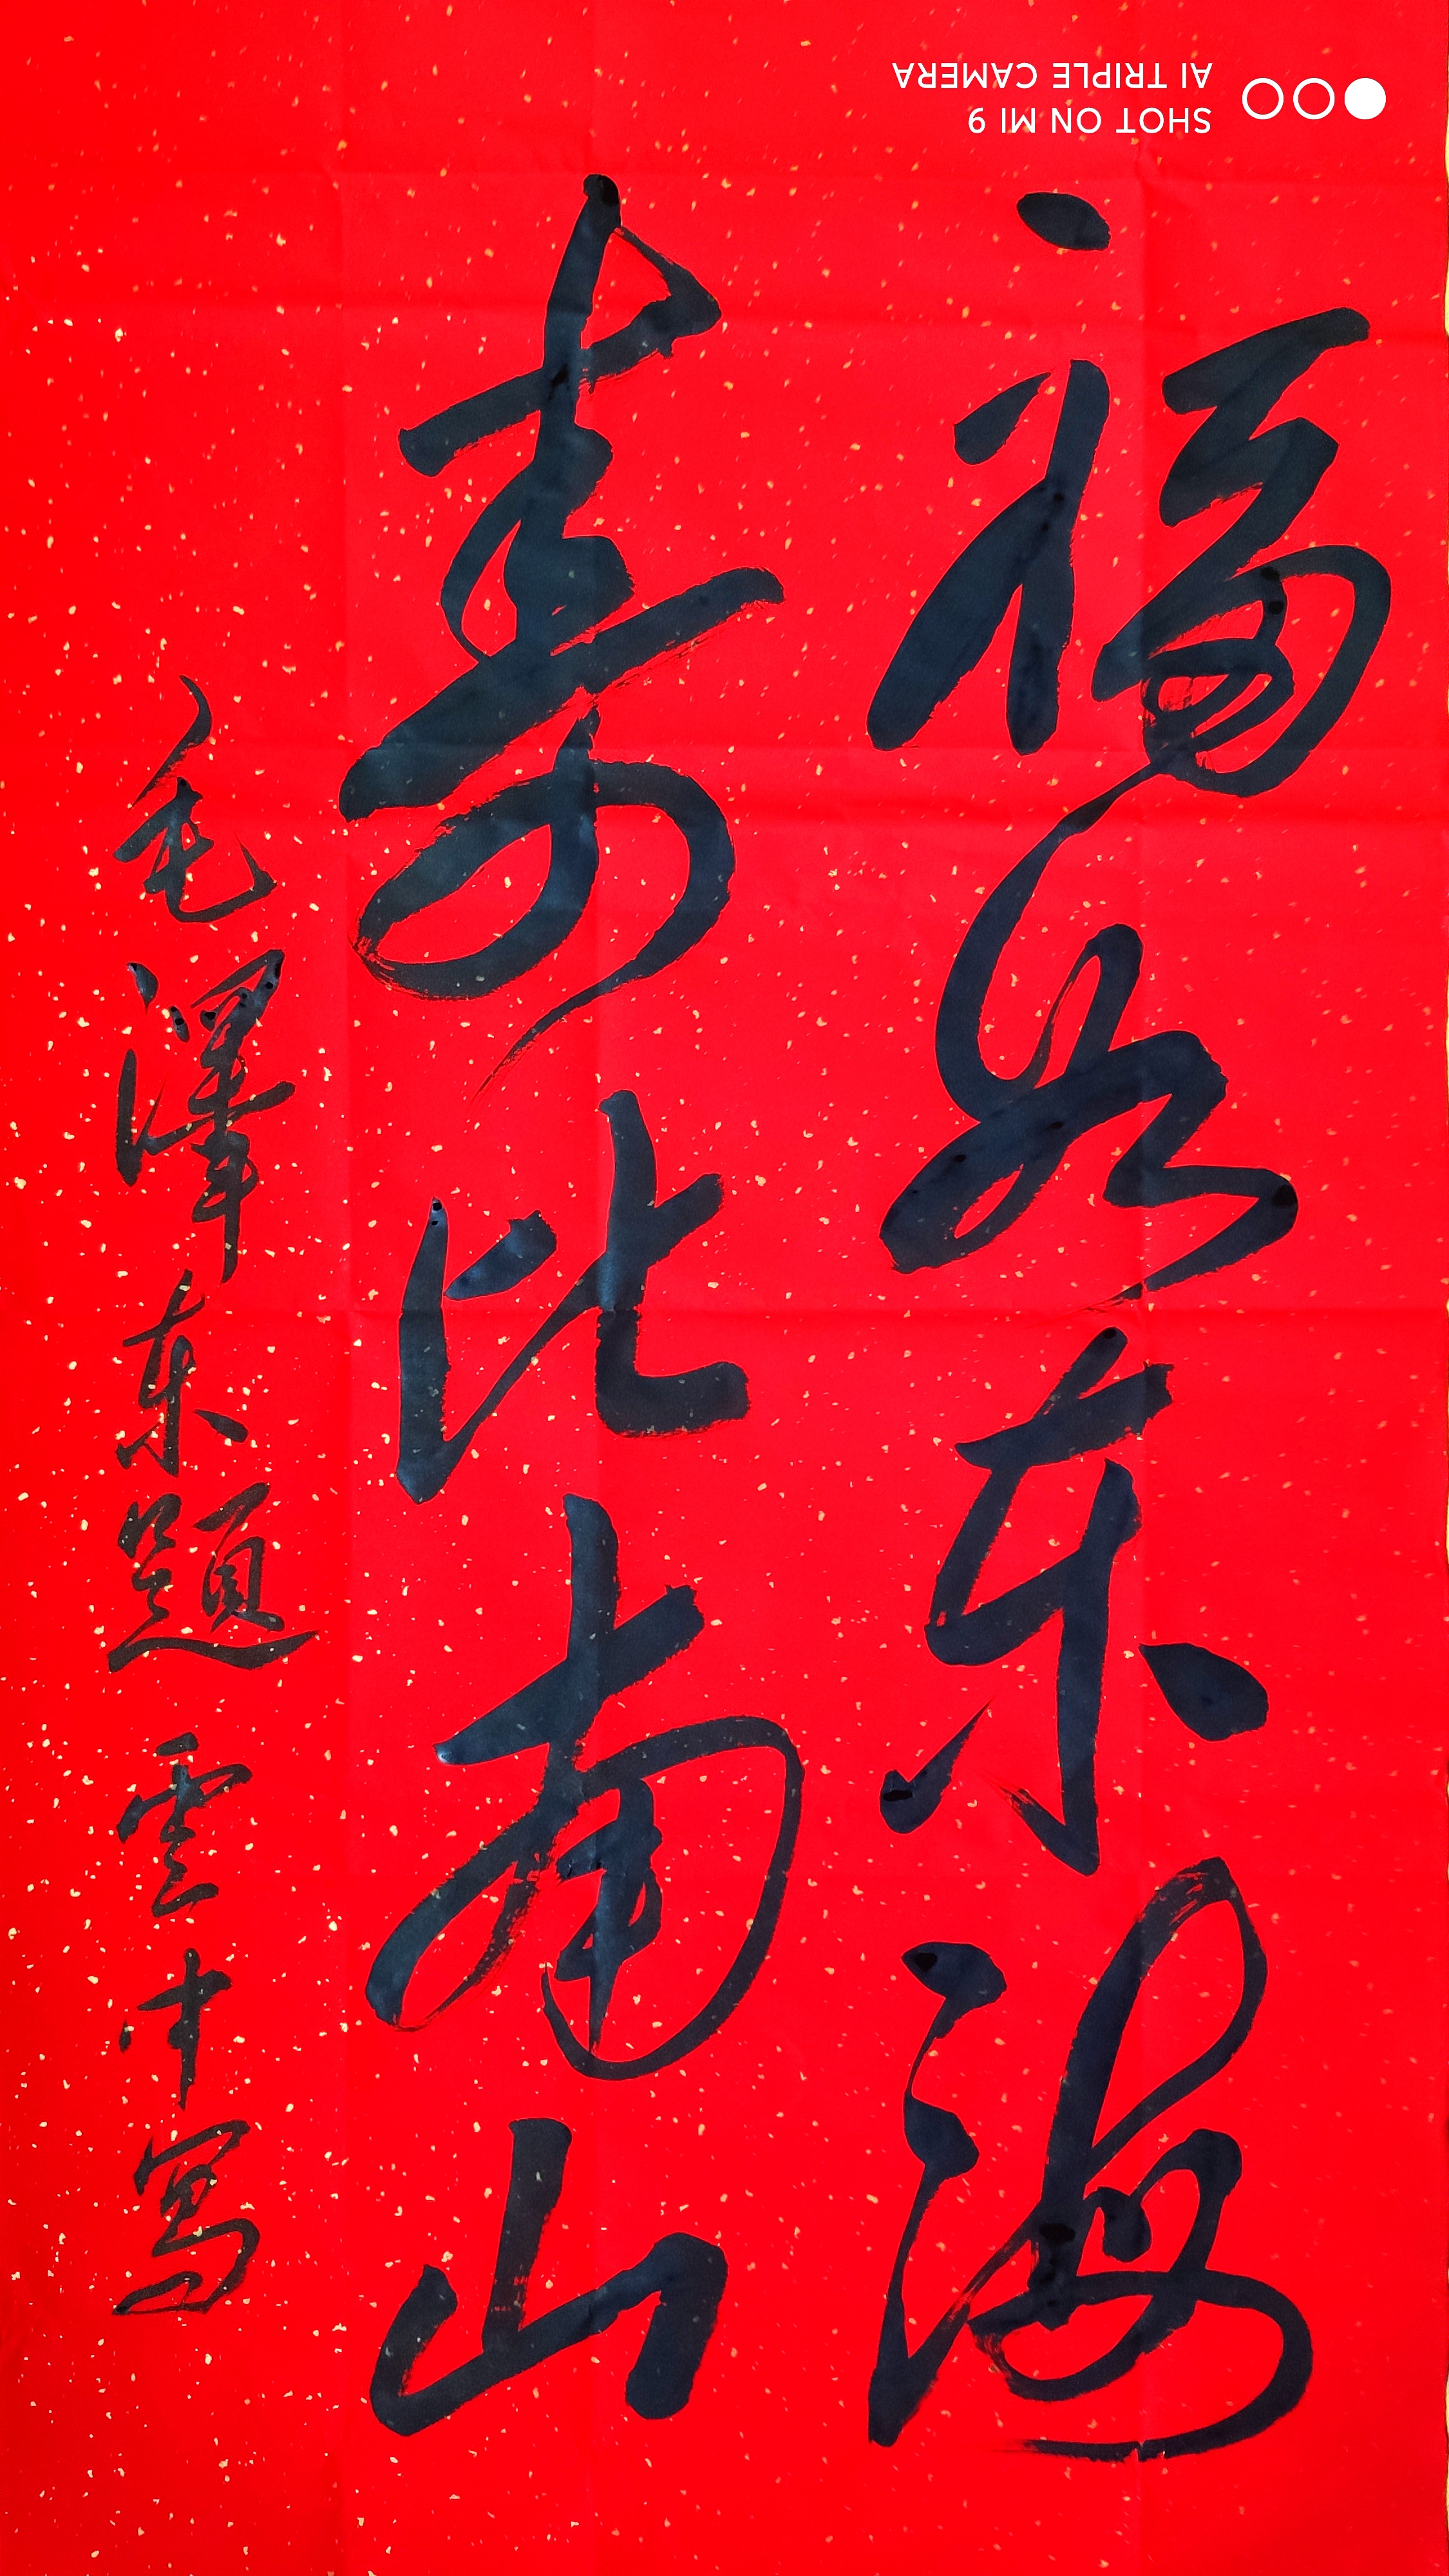 福如东海
寿比南山
毛澤东题 雲中写
SHOT ON MI 9
AI TRIPLE CAMERA